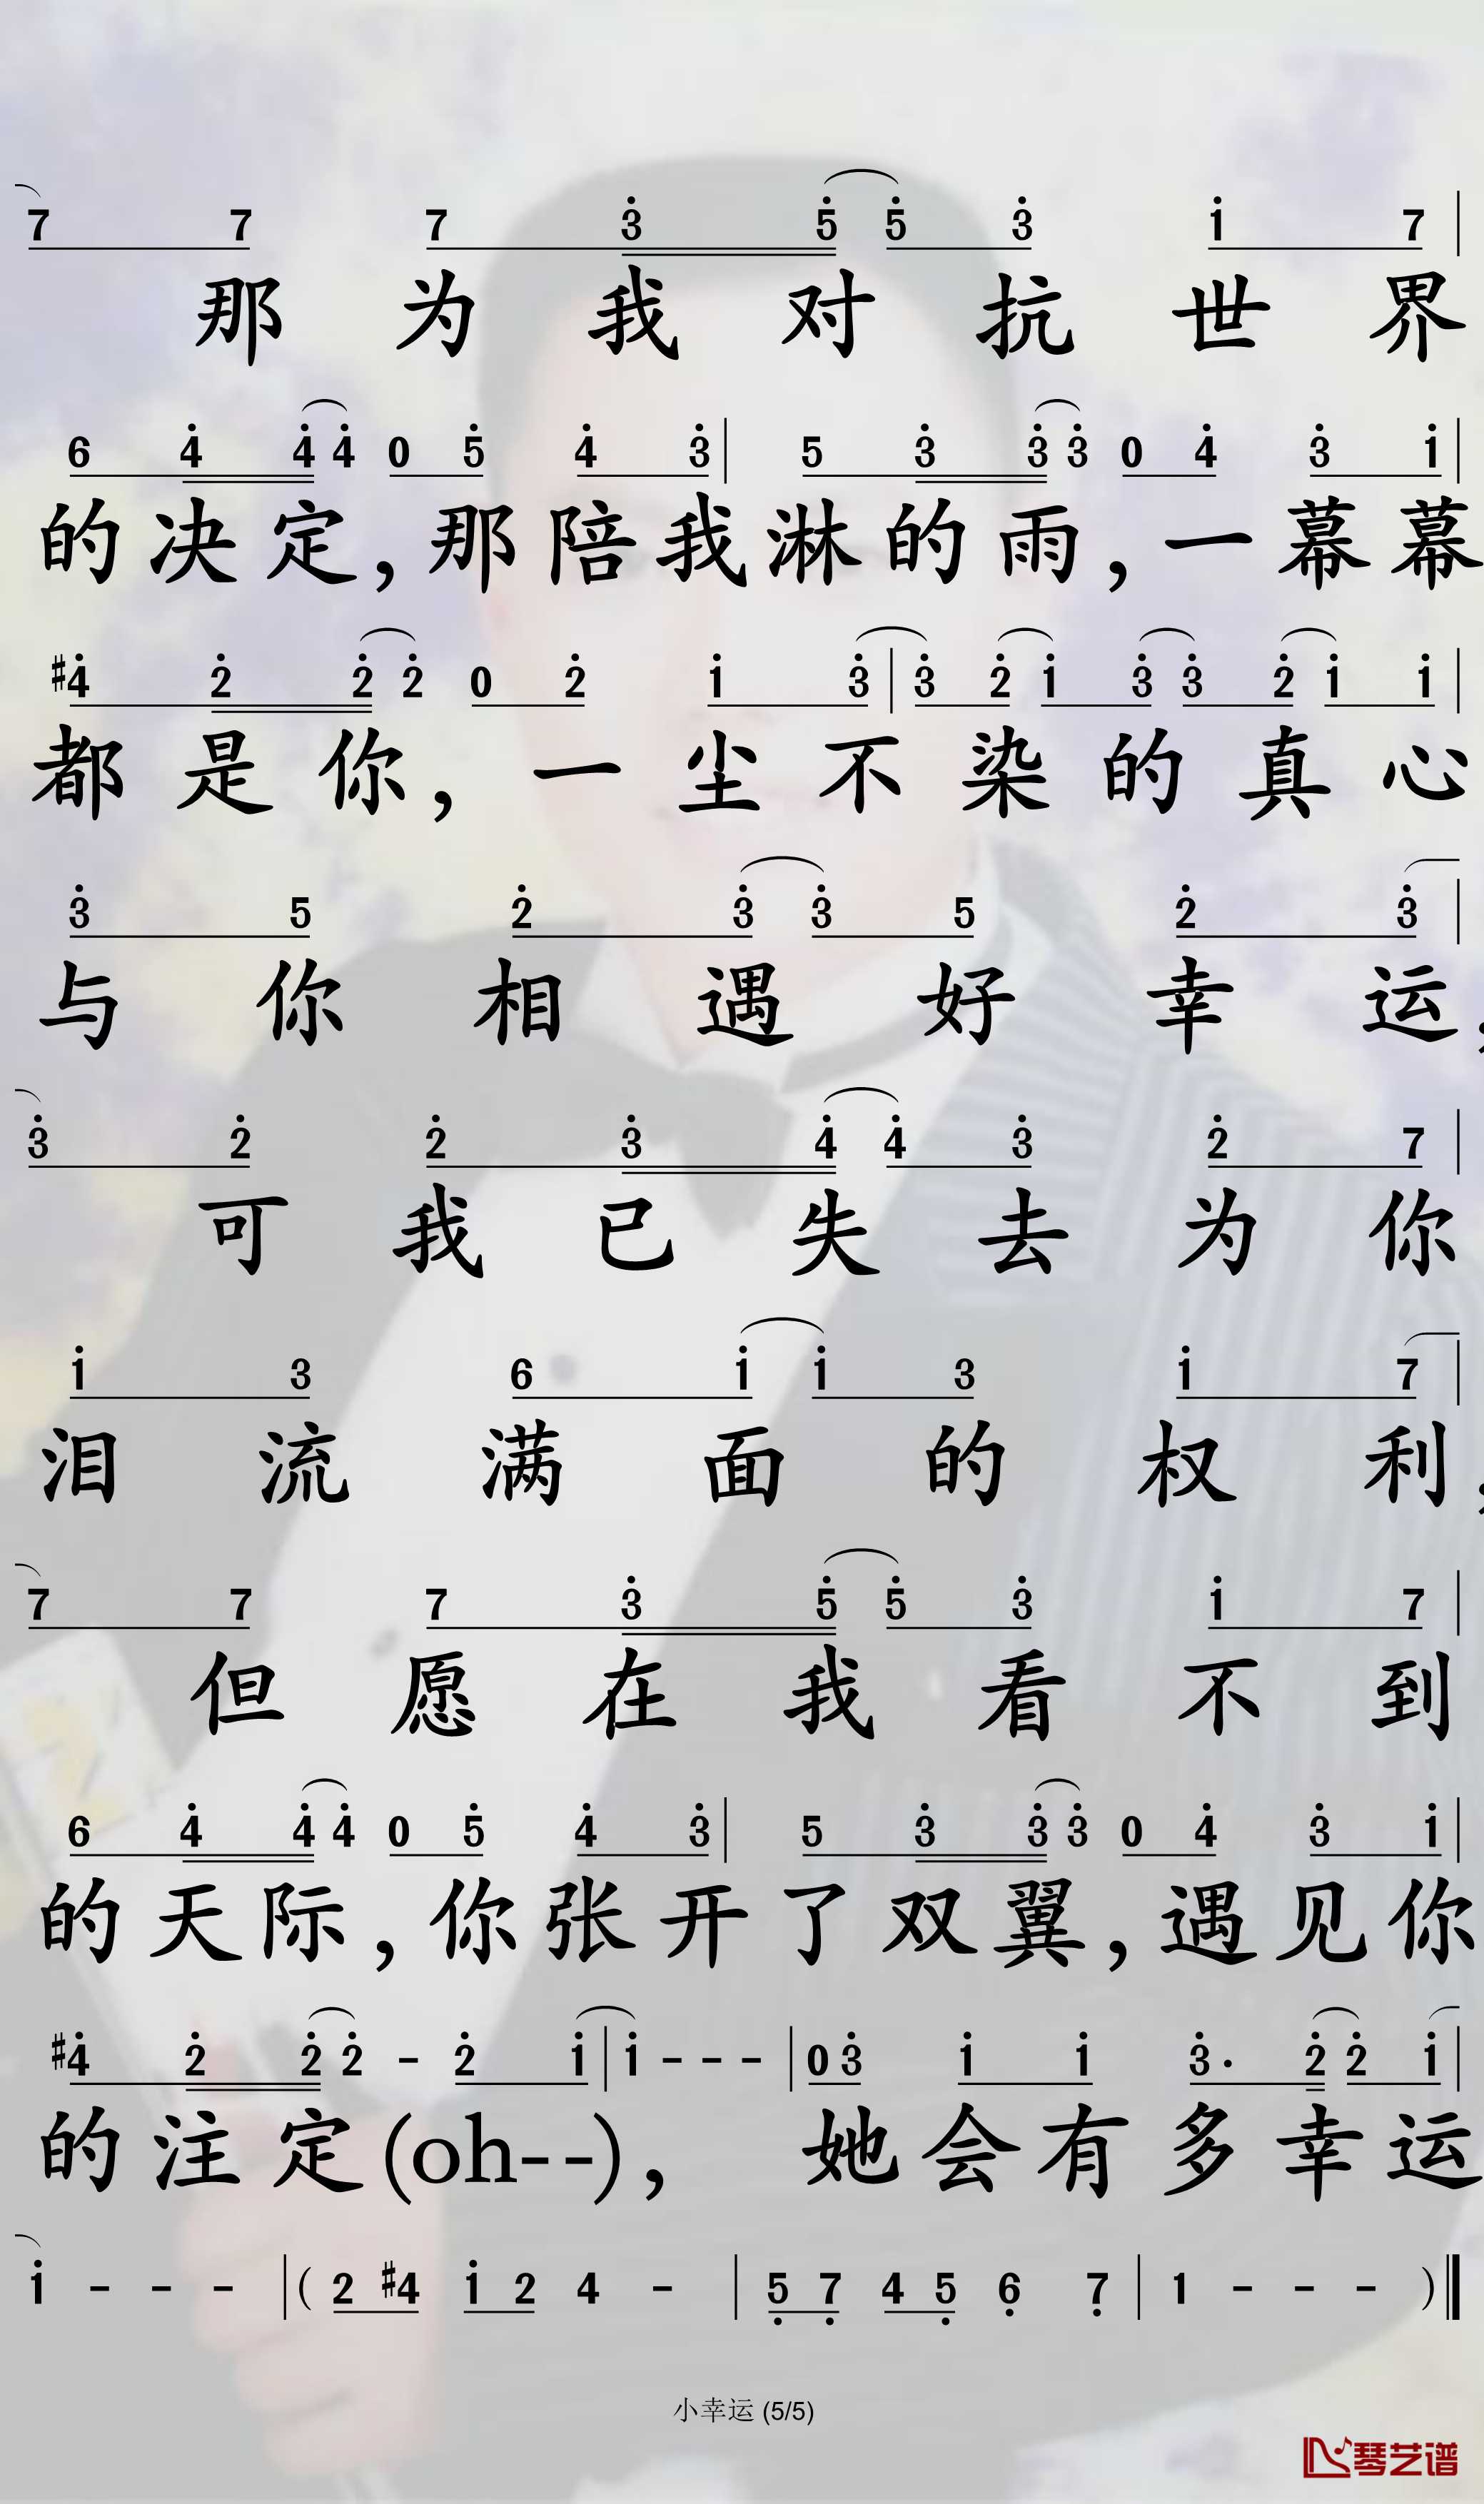 7 7 7 3 5 5 3 1 7
那为我对抗世界
6 4 4 4 0 5 4 3 | 5 3 3 3 0 4 3 1 |
的决定,那陪我淋的雨,一幕幕
#4 2 2 2 0 2 1 3 | 3 2 1 3 3 2 1 1 |
都是你,一尘不染的真心
3 5 2 3 3 5 2 3 |
与你相遇好幸运,
3 2 2 3 4 4 3 2 7 |
可我已失去为你
1 3 6 1 1 3 1 7 |
泪流满面的权利,
7 7 7 3 5 5 3 1 7 |
但愿在我看不到
6 4 4 4 0 5 4 3 | 5 3 3 3 0 4 3 1 |
的天际,你张开了双翼,遇见你
#4 2 2 2 - 2 1 | 1 - - - | 0 3 1 1 3· 2 2 1 |
的注定(oh--), 她会有多幸运
1 - - - | ( 2 #4 1 2 4 - | 5 7 4 5 6 7 | 1 - - - )
小幸运 (5/5)
琴艺谱